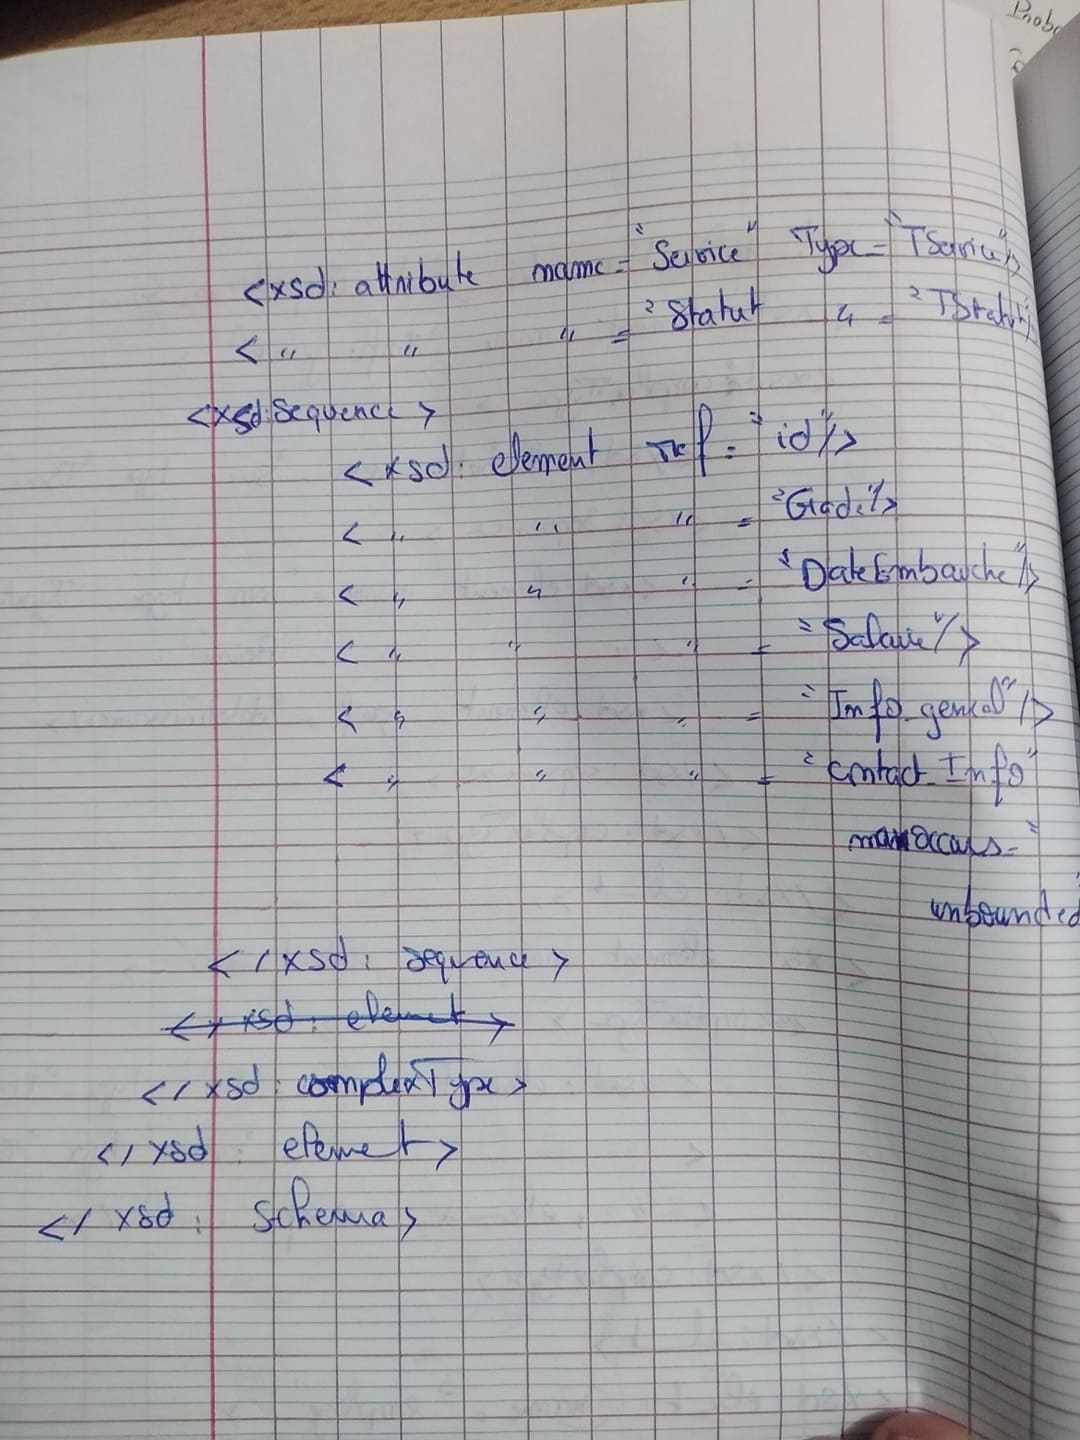 Proba
<xsd: attribute name = "Service" Type = "TService"/>
< " " " = "Statut " = "TStatut"/>
<xsd:Sequence>
<xsd: element ref = "id"/>
< " " " = "Grade"/>
< " " " = "DateEmbauche"/>
< " " " = "Salaire"/>
< " " " = "Info_general"/>
< " " " = "contact_Info"
maxOccurs = "
unbounded"
</xsd: sequence>
</xsd: element>
</xsd: complexType>
</xsd: element>
</xsd: Schema>